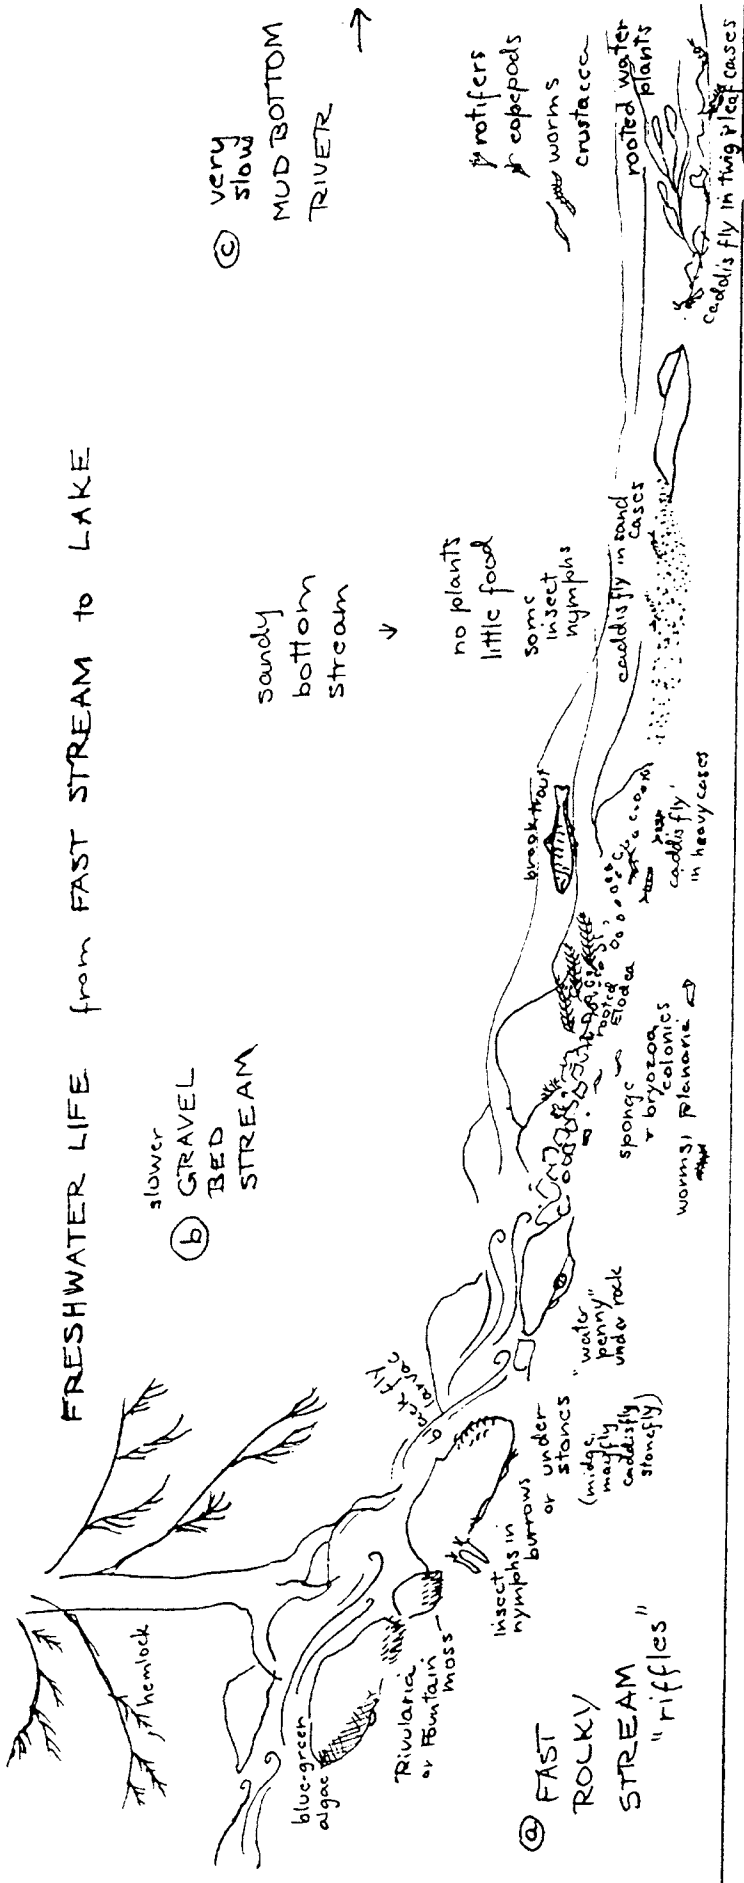 FRESHWATER LIFE from FAST STREAM to LAKE
hemlock
blue-green
algae
Rivularia
or Fountain
moss
ⓐ FAST
ROCKY
STREAM
"riffles"
insect
nymphs in
burrows
or under
stones
(midge,
mayfly
caddisfly
stonefly)
fly
larvae
"water
penny"
under rock
slower
ⓑ GRAVEL
BED
STREAM
brook trout
rooted
Elodea
sponge
& bryozoa
colonies
worms, planaria
caddis fly
in heavy cases
sandy
bottom
stream
no plants
little food
some
insect
nymphs
caddis fly in sand
cases
ⓒ very
slow
MUD BOTTOM
RIVER
rotifers
copepods
worms
crustacea
rooted water
plants
caddis fly in twig & leaf cases